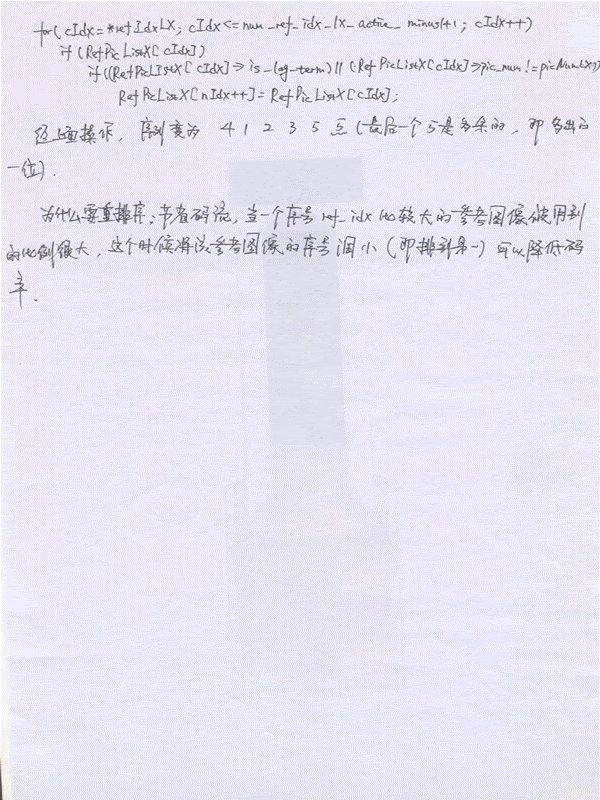 for( cIdx=*refIdxLX; cIdx<=num_ref_idx_lX_active_minus1+1; cIdx++)
if (RefPicListX[cIdx])
if((RefPicListX[cIdx]->is_long_term)||(RefPicListX[cIdx]->pic_num != picNumLX))
RefPicListX[nIdx++]=RefPicListX[cIdx];
经上面操作, 序列变为 4 1 2 3 5 (最后一个5是多余的, 即多出的
一位).
为什么要重排序: 节省码流, 当一个序号ref_idx比较大的参考图像被用到
的比例很大, 这个时候将该参考图像的序号调小 (即排到第一) 可以降低码
率.